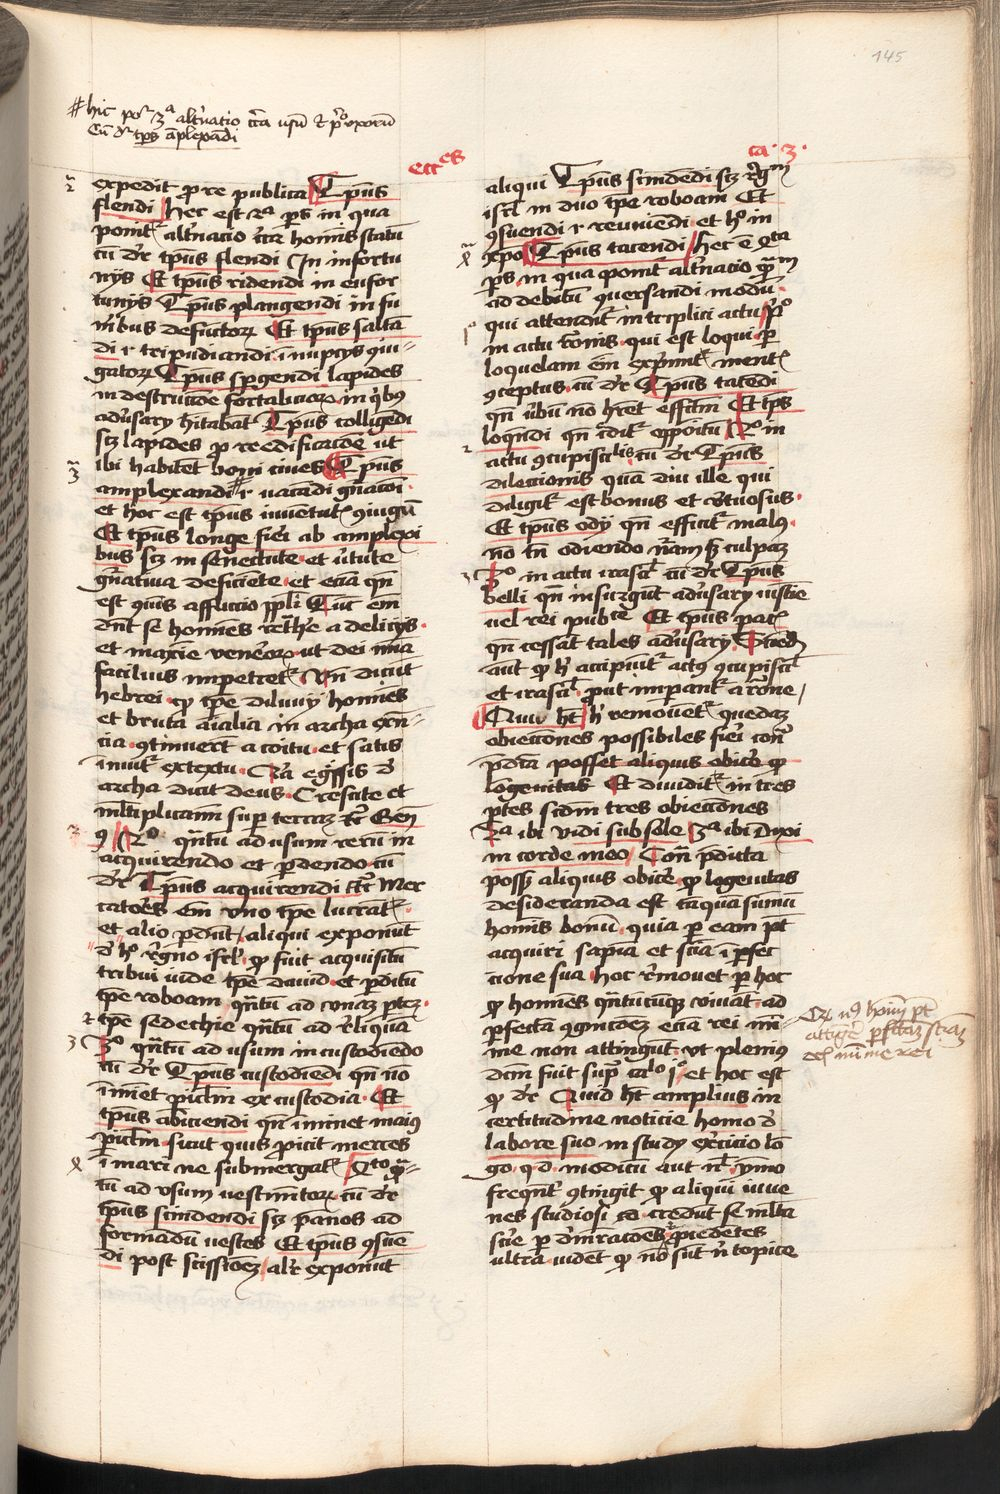 145
hic por 3a alt'natio circa usu et p'o uxorum
Cum dr tps amplexandi
ecc'es
ca 3
expedit pro re publica Tpus
flendi hec est 2a ps in qua
ponit alt'nacio circa hominis statu
cu dr tpus flendi In infortu
nijs Et tpus ridendi in eufor
tunijs Tpus plangendi in fu
n'ibus defunctorum Et tpus salta
di et tripudiandi in nuptijs iui
gatorum Tpus spgendi lapides
in destructione fortaliciorum in quibus
adusarij hitabat Tpus colligendi
scz lapides pro reedificacione ut
ibi habitet boni ciues Tpus
amplexandi et vacandi gnacioni
et hoc est tpus iuuentutis coniugum
Et tpus longe fieri ab amplexi
bus scz in senectute et virtute
gnatiua deficiente et etiam qn
est comunis afflictio ppli Tunc enim
dnt se homines ret'he a delicijs
et maxime venereorum ut dei mia
facilius impetretur Vn dicunt
hebrei quod tpe diluuij homines
et bruta aialia in archa exn
tia continuerunt a coitu et satis
innuitur ex textu Na egressis de
archa dicit deus Crescite et
multiplicamini super terram etc Gen
9 2o quantum ad usum rerum in
acquirendo et perdendo cum
dr Tpus acquirendi etc Mer
catores enim uno tpe lucrantur
et alio perdunt aliqui exponunt
de hoc regno isrl quod fuit acquisitum
tribui iude tpe dauid et perditum
tpe roboam quantum ad decem partes
tpe sedechie quantum ad reliquam
3o quantum ad usum in custodiendo
cum dr Tpus custodiendi qn non
iminet periculum ex custodia Et
tpus abiciendi qn iminet maius
periculum sicut quis proicit merces
in mari ne submergatur Quarto quan
tum ad usum uestimentorum cum dr
tpus scindendi scz pannos ad
formandum uestes Et tpus consuen
di post scissionem aliter exponunt
aliqui Tpus scindendi scz regnum
isrl in duo tpe roboam Et
consuendi et reuniendi et hoc in
xpo Tpus tacendi hec est 4ta
ps in qua ponit alt'nacio quantum
ad debitum conuersandi modum
qui attenditur in triplici actu primo
in actu racionis qui est loqui per
loquelam enim exprimitur mentis
conceptus cum dr Tpus tacendi
qn verbum non haberet effectum Et tps
loquendi qn creditur oppositum 2o in
actu concupiscibilis cum dr Tpus
dilectionis quam diu ille qui
diligitur est bonus et virtuosus
Et tpus odij qn efficitur malus
non tn odiendo naturam sed culpam
3o in actu irascibilis cum dr Tpus
belli qn insurgunt adusarij iusticie
uel rei publice Et tpus pacis
qn cessant tales adusarij Attendendum
autem quod hic accipiuntur actus concupiscibilis
et irascibilis prout imperantur a racione
Quid habet hic remouentur quedam
obiectiones possibiles fieri contra
predicta posset aliquis obicere quod
longeuitas Et diuiditur in tres
partes secundum tres obiectiones
2a ibi Vidi sub sole 3a ibi Dixi
in corde meo Contra predicta
posset aliquis obicere quod longeuitas
desideranda est tanquam summum
hominis bonum quia per eam potest
acquiri sapientia et scientia in perfec
tione sua hoc remouet per hoc
quod homines quantumcunque viuant ad
perfectam cognicionem etiam rei mini
me non attingunt ut plenius
dictum fuit supra capitulo 1o et hoc est
quod dr Quid habet amplius in
certitudine noticie homo de
labore suo in studij exercicio lon
go q d modicum aut nichil ymmo
frequenter contingit quod aliqui iuue
nes studiosi credunt se multa
scire per demonstraciones procedentes
ultra uident quod non sunt nisi topice
Qr nq homin pt
attingere perfectam scientiam
etiam minime rei